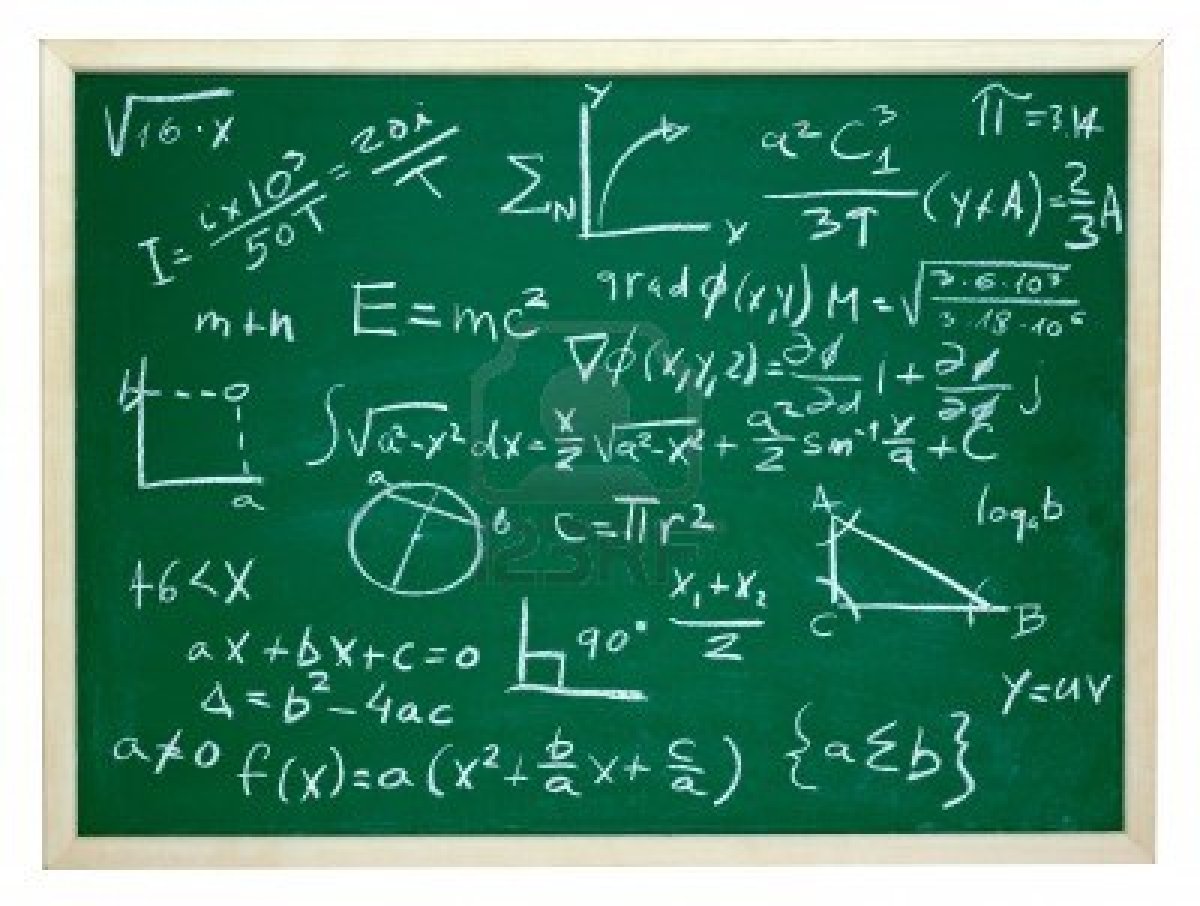 √16·x
I = i×10³/50T = 20i/T
Σ N
Y
X
a²C₁³/3T (y+A) = 2/3 A
π = 3.14
m+n
E = mc²
grad ϕ(x,y)
M = √(3·6·10³/3·18·10⁶)
∇ϕ(x,y,z) = ∂ϕ/∂d i + ∂ϕ/∂ϕ j
a
∫√a²-x² dx = x/2 √a²-x² + a²/2 sin⁻¹ x/a + C
a
B
C = πr²
A
C
B
logₐb
+6<X
x₁+x₂/2
90°
ax+bx+c=0
Δ = b²-4ac
Y=uv
a≠0
f(x)=a(x²+b/a x+c/a)
{a≤b}
123RF